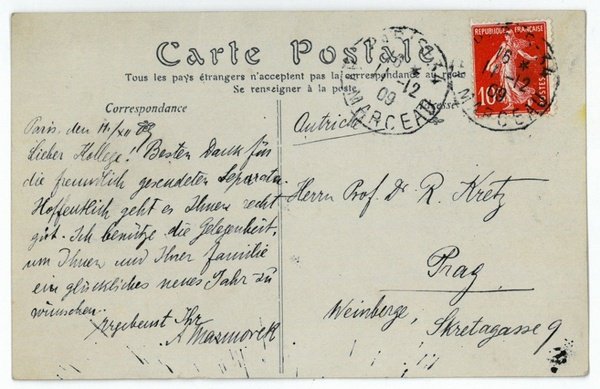 Carte Postale
Tous les pays étrangers n'acceptent pas la correspondance au recto
Se renseigner à la poste
Correspondance
Paris, den 11/XII 09
Lieber Kollege! Besten Dank für
die freundlich gesendeten Separata.
Hoffentlich geht es Ihnen recht
gut. Ich benütze die Gelegenheit,
um Ihnen und Ihrer Familie
ein glückliches neues Jahr zu
wünschen.
Ergebenst Ihr
A Marmorek
Autriche
Herrn Prof. Dr R. Kretz
Prag
Weinberge, Skretagasse 9
REPUBLIQUE FRANÇAISE
10
POSTES
MARCEAU
12
09
MARCEAU
12
09